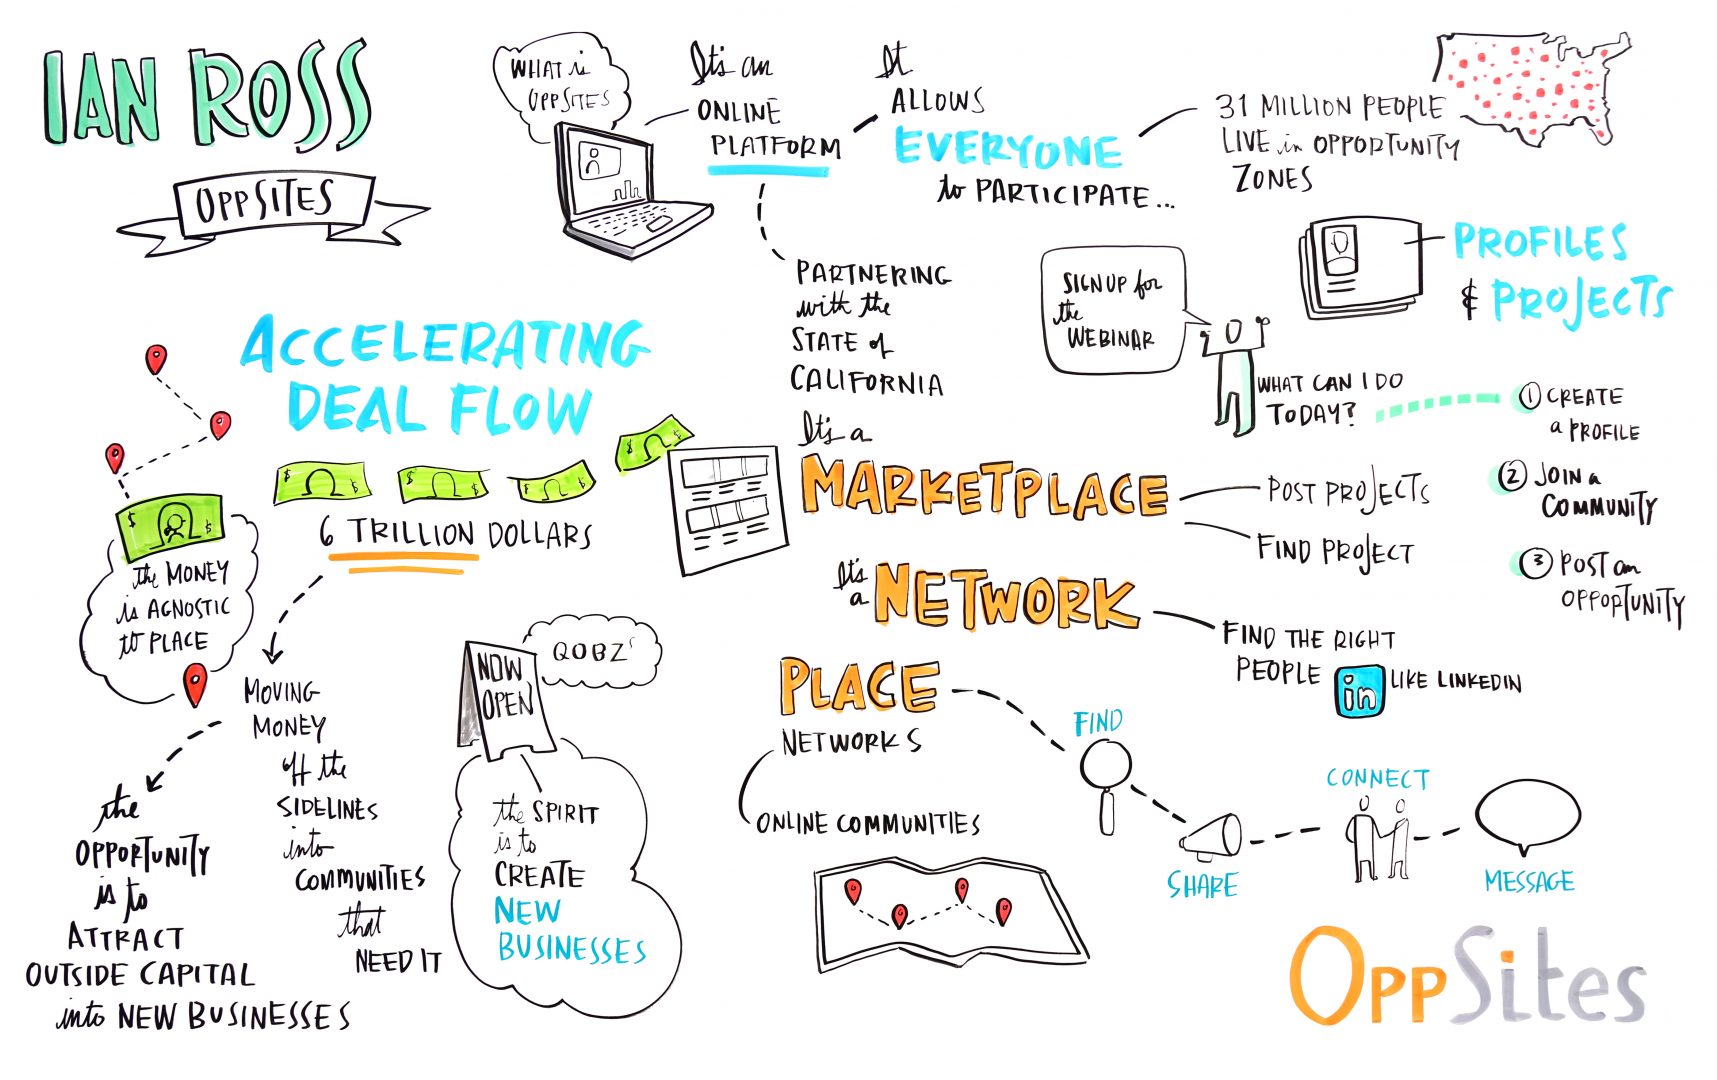 IAN ROSS
OPPSITES
WHAT is
OPPSITES
It's an
ONLINE
PLATFORM
It
ALLOWS
EVERYONE
to PARTICIPATE...
31 MILLION PEOPLE
LIVE in OPPORTUNITY
ZONES
PARTNERING
with the
STATE of
CALIFORNIA
SIGN UP for
the
WEBINAR
PROFILES
& PROJECTS
WHAT CAN I DO
TODAY?
1 CREATE
a PROFILE
2 JOIN a
COMMUNITY
3 POST an
OPPORTUNITY
ACCELERATING
DEAL FLOW
$ $
$ $
$ $
$ $
6 TRILLION DOLLARS
$ $
the MONEY
is AGNOSTIC
to PLACE
MOVING
MONEY
off the
SIDELINES
into
COMMUNITIES
that
NEED IT
the
OPPORTUNITY
is to
ATTRACT
OUTSIDE CAPITAL
into NEW BUSINESSES
NOW
OPEN
QOBZ's
the SPIRIT
is to
CREATE
NEW
BUSINESSES
It's a
MARKETPLACE
POST PROJECTS
FIND PROJECT
It's
a NETWORK
FIND THE RIGHT
PEOPLE
in LIKE LINKEDIN
PLACE
NETWORKS
ONLINE COMMUNITIES
FIND
SHARE
CONNECT
MESSAGE
OppSites